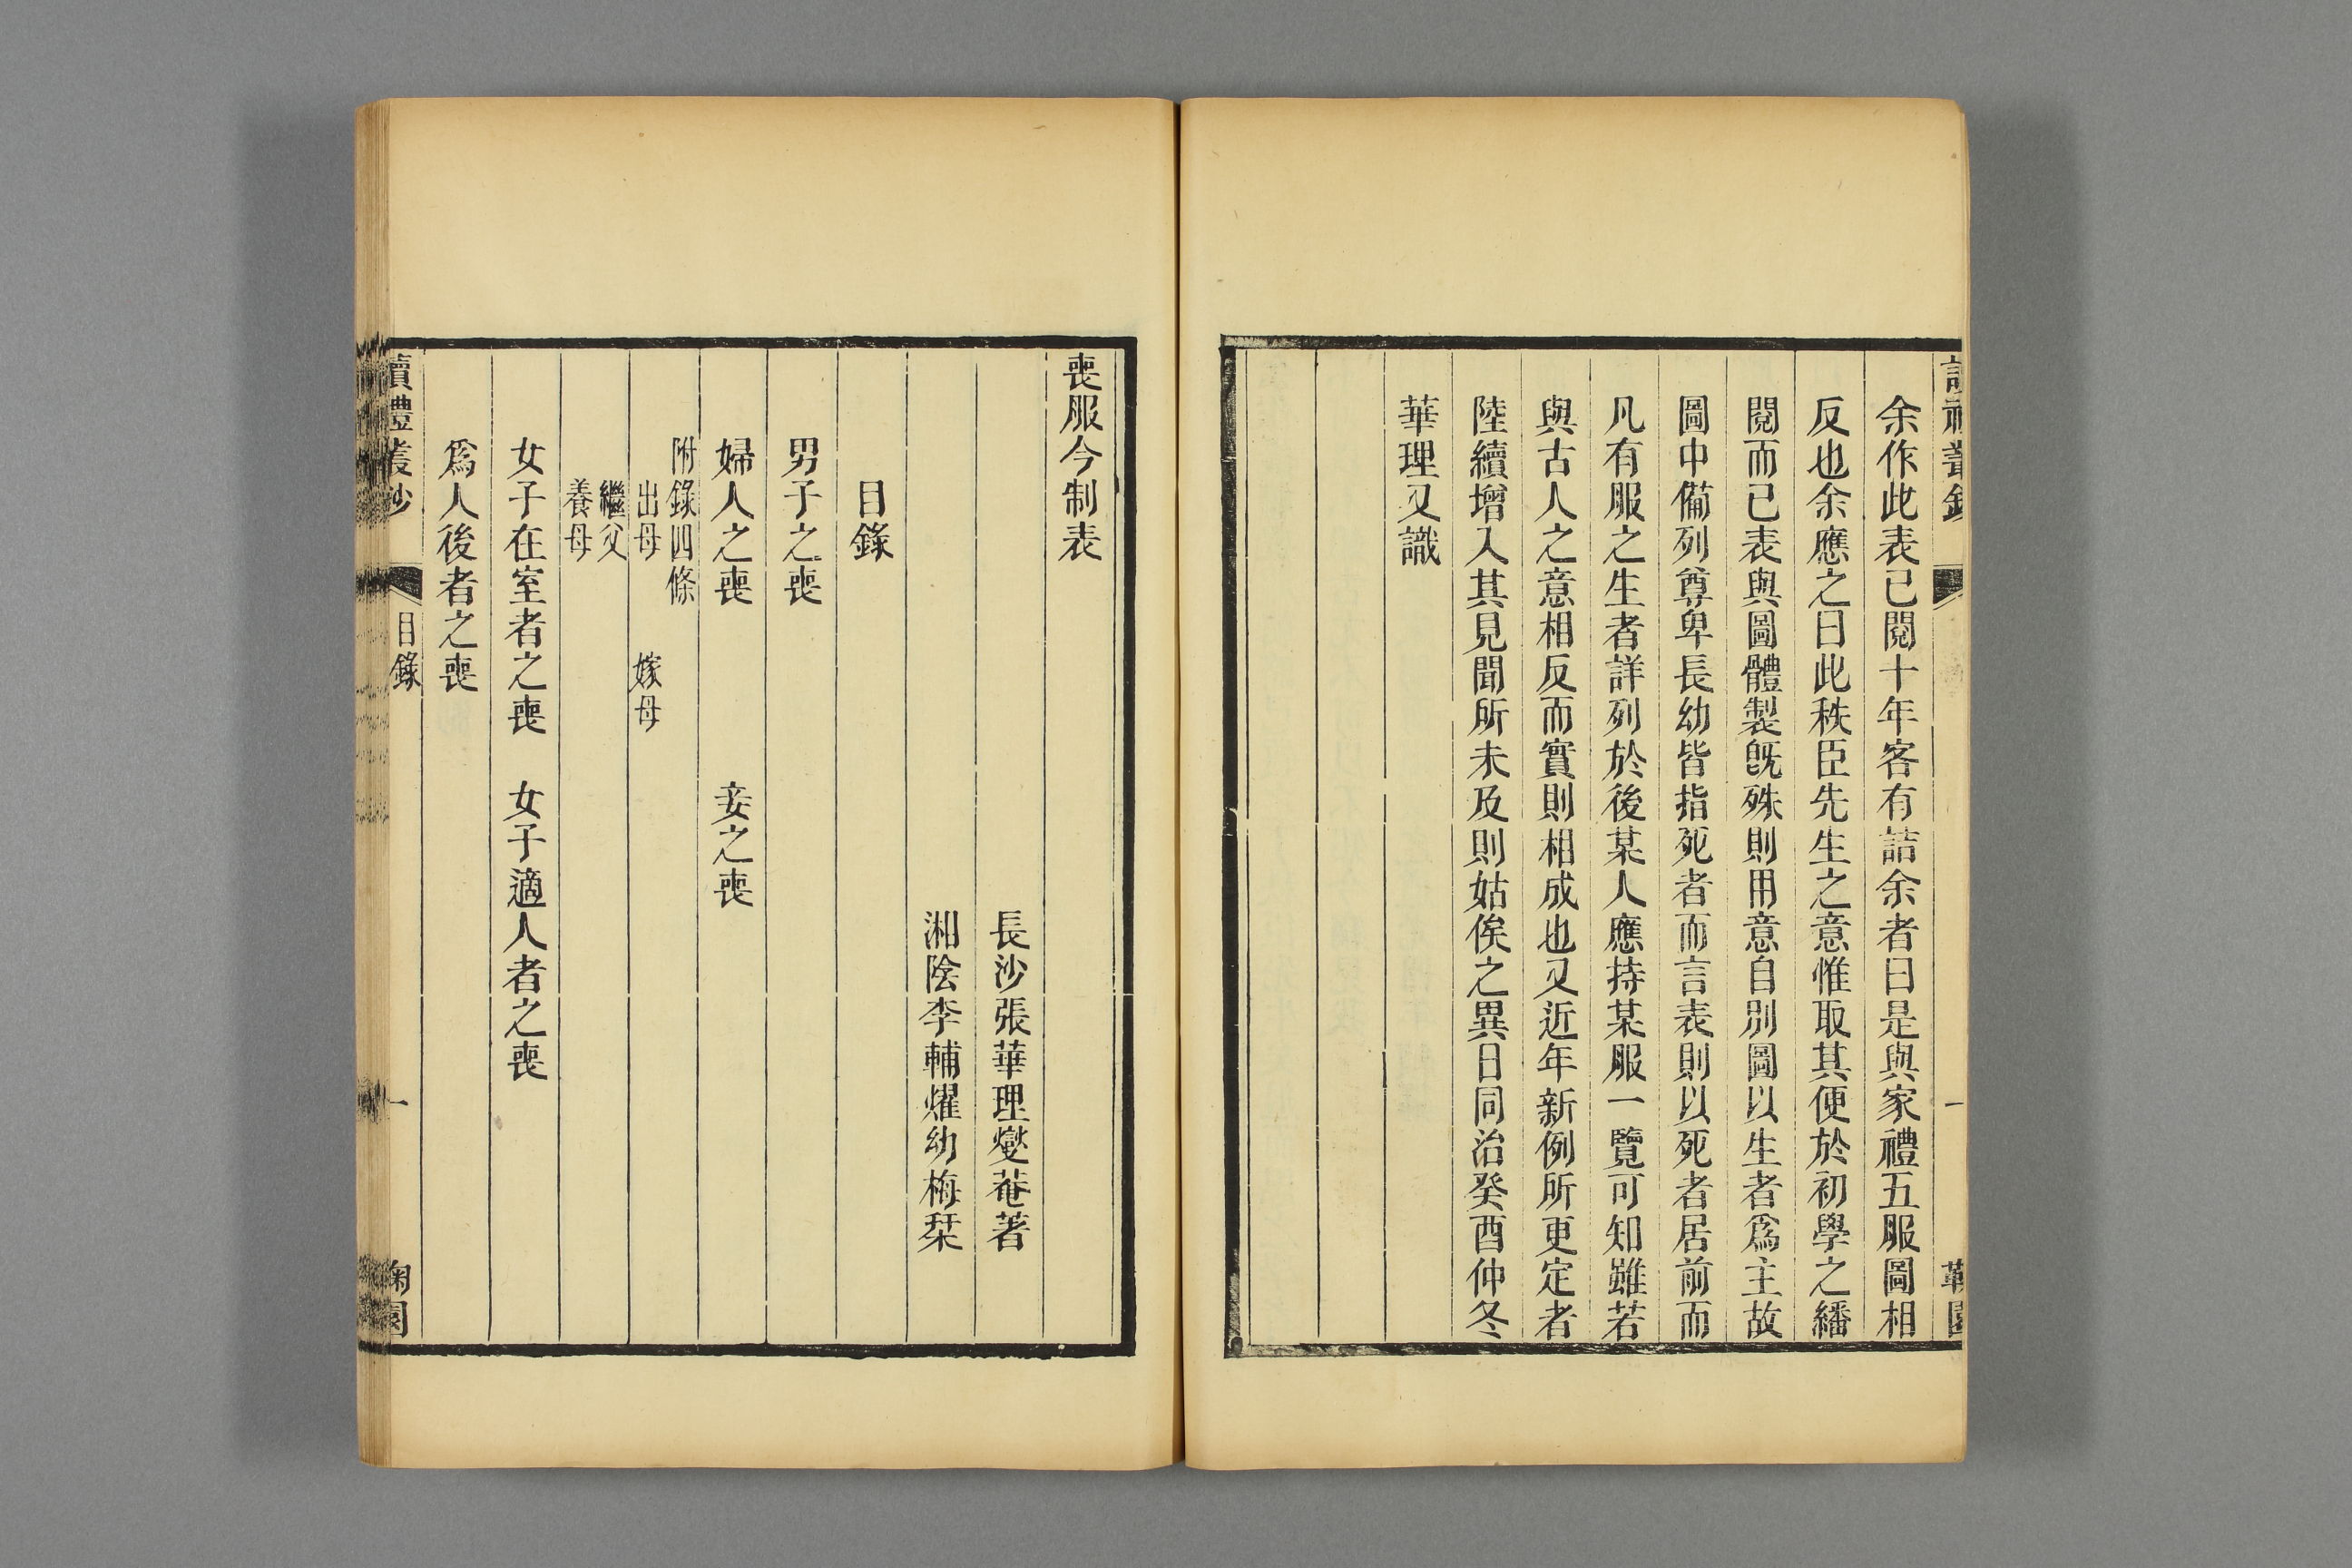 余作此表已閱十年客有詰余者曰是與家禮五服圖相
反也余應之曰此秩臣先生之意惟取其便於初學之繙
閱而已表與圖體製旣殊則用意自別圖以生者爲主故
圖中備列尊卑長幼皆指死者而言表則以死者居前而
凡有服之生者詳列於後某人應持某服一覽可知雖若
與古人之意相反而實則相成也又近年新例所更定者
陸續增入其見聞所未及則姑俟之異日同治癸酉仲冬
華理又識
喪服今制表
長沙張華理燮菴著
湘陰李輔燿幼梅栞
目錄
男子之喪
婦人之喪 妾之喪
附錄四條
出母 嫁母
繼父
養母
女子在室者之喪 女子適人者之喪
爲人後者之喪
讀禮叢鈔 目錄 一 鞠園